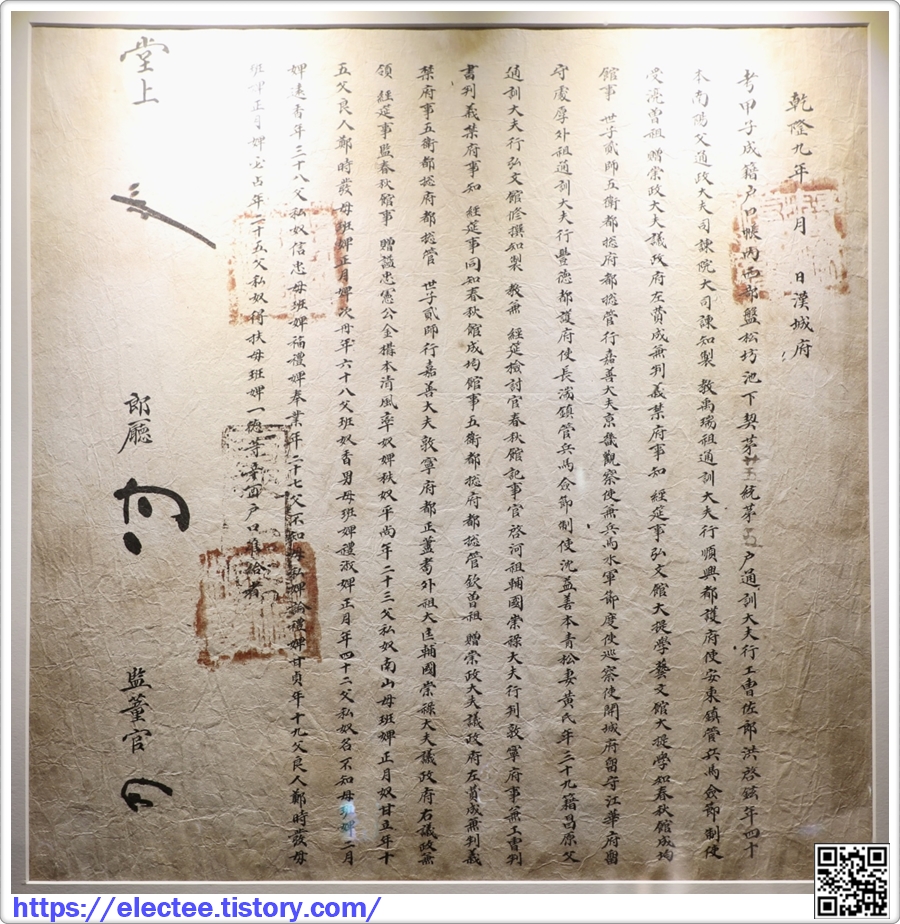 乾隆九年 月 日漢城府
考甲子成籍戶口帳內西部盤松坊池下契第 統第 戶通訓大夫行工曹佐郎洪啓鉉年四十
本南陽父通政大夫司諫院大司諫知製 敎禹瑞祖通訓大夫行順興都護府使安東鎭管兵馬僉節制使
受瀗曾祖 贈崇政大夫議政府左贊成兼判義禁府事知 經筵事弘文館大提學藝文館大提學知春秋館成均
館事 世子貳師五衛都摠府都摠管行嘉善大夫京畿觀察使兼兵馬水軍節度使巡察使開城府留守江華府留
守處厚外祖通訓大夫行豐德都護府使長湍鎭管兵馬僉節制使沈益善本青松妻黃氏年三十九籍昌原父
通訓大夫行弘文館修撰知製 敎兼 經筵檢討官春秋館記事官啓河祖輔國崇祿大夫行判敦寧府事兼工曹判
書判義禁府事知 經筵事同知春秋館成均館事五衛都摠府都摠管欽曾祖 贈崇政大夫議政府左贊成兼判義
禁府事五衛都摠府都摠管 世子貳師行嘉善大夫敦寧府都正藎耈外祖大匡輔國崇祿大夫議政府右議政兼
領 經筵事監春秋館事 贈諡忠憲公金構本清風率奴婢秩奴平尚年二十三父私奴南山母班婢正月奴甘立年十
五父良人鄭時發母班婢正月婢次母年六十八父班奴香男母班婢禮淑婢正月年四十二父私奴名不知母班婢二月
婢遠香年三十八父私奴信忠母班婢補禮婢奉業年二十七父不知母私婢論禮婢甘貞年十九父良人鄭時發母
班婢正月婢宝占年二十五父私奴得扶母班婢一德等辛酉戶口准給者
堂上
郎廳
監董官
https://electee.tistory.com/